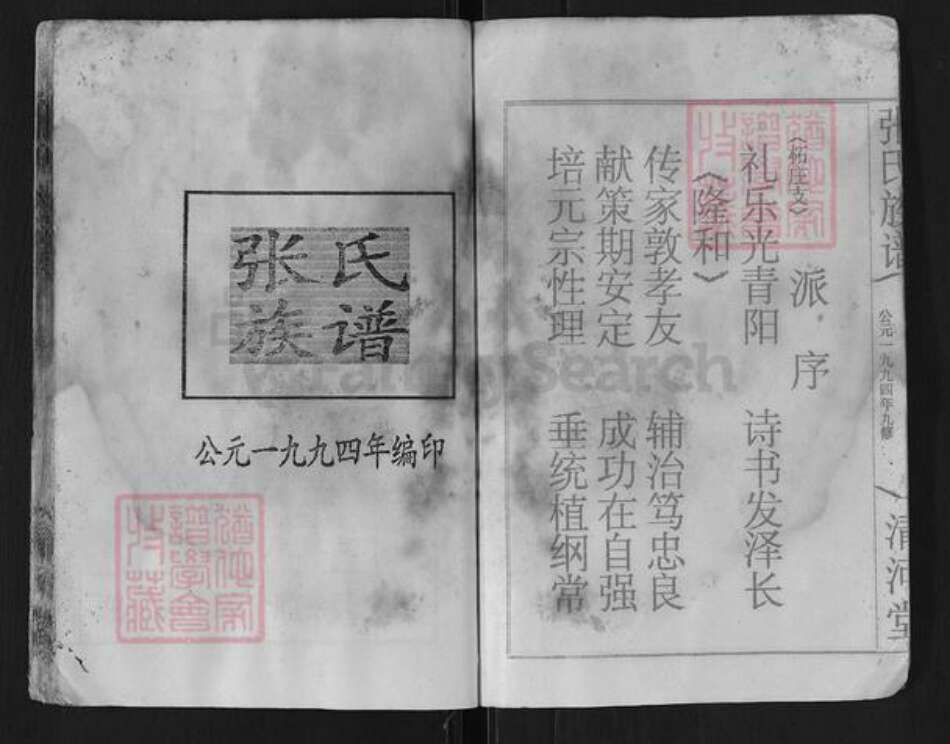 张氏
族谱
公元一九九四年编印
张氏族谱
公元一九九四年九修
清河堂
派序
礼乐光青阳 诗书发泽长
《隆和》
传家敦孝友 辅治笃忠良
献策期安定 成功在自强
培元宗性理 垂统植纲常
FamilySearch